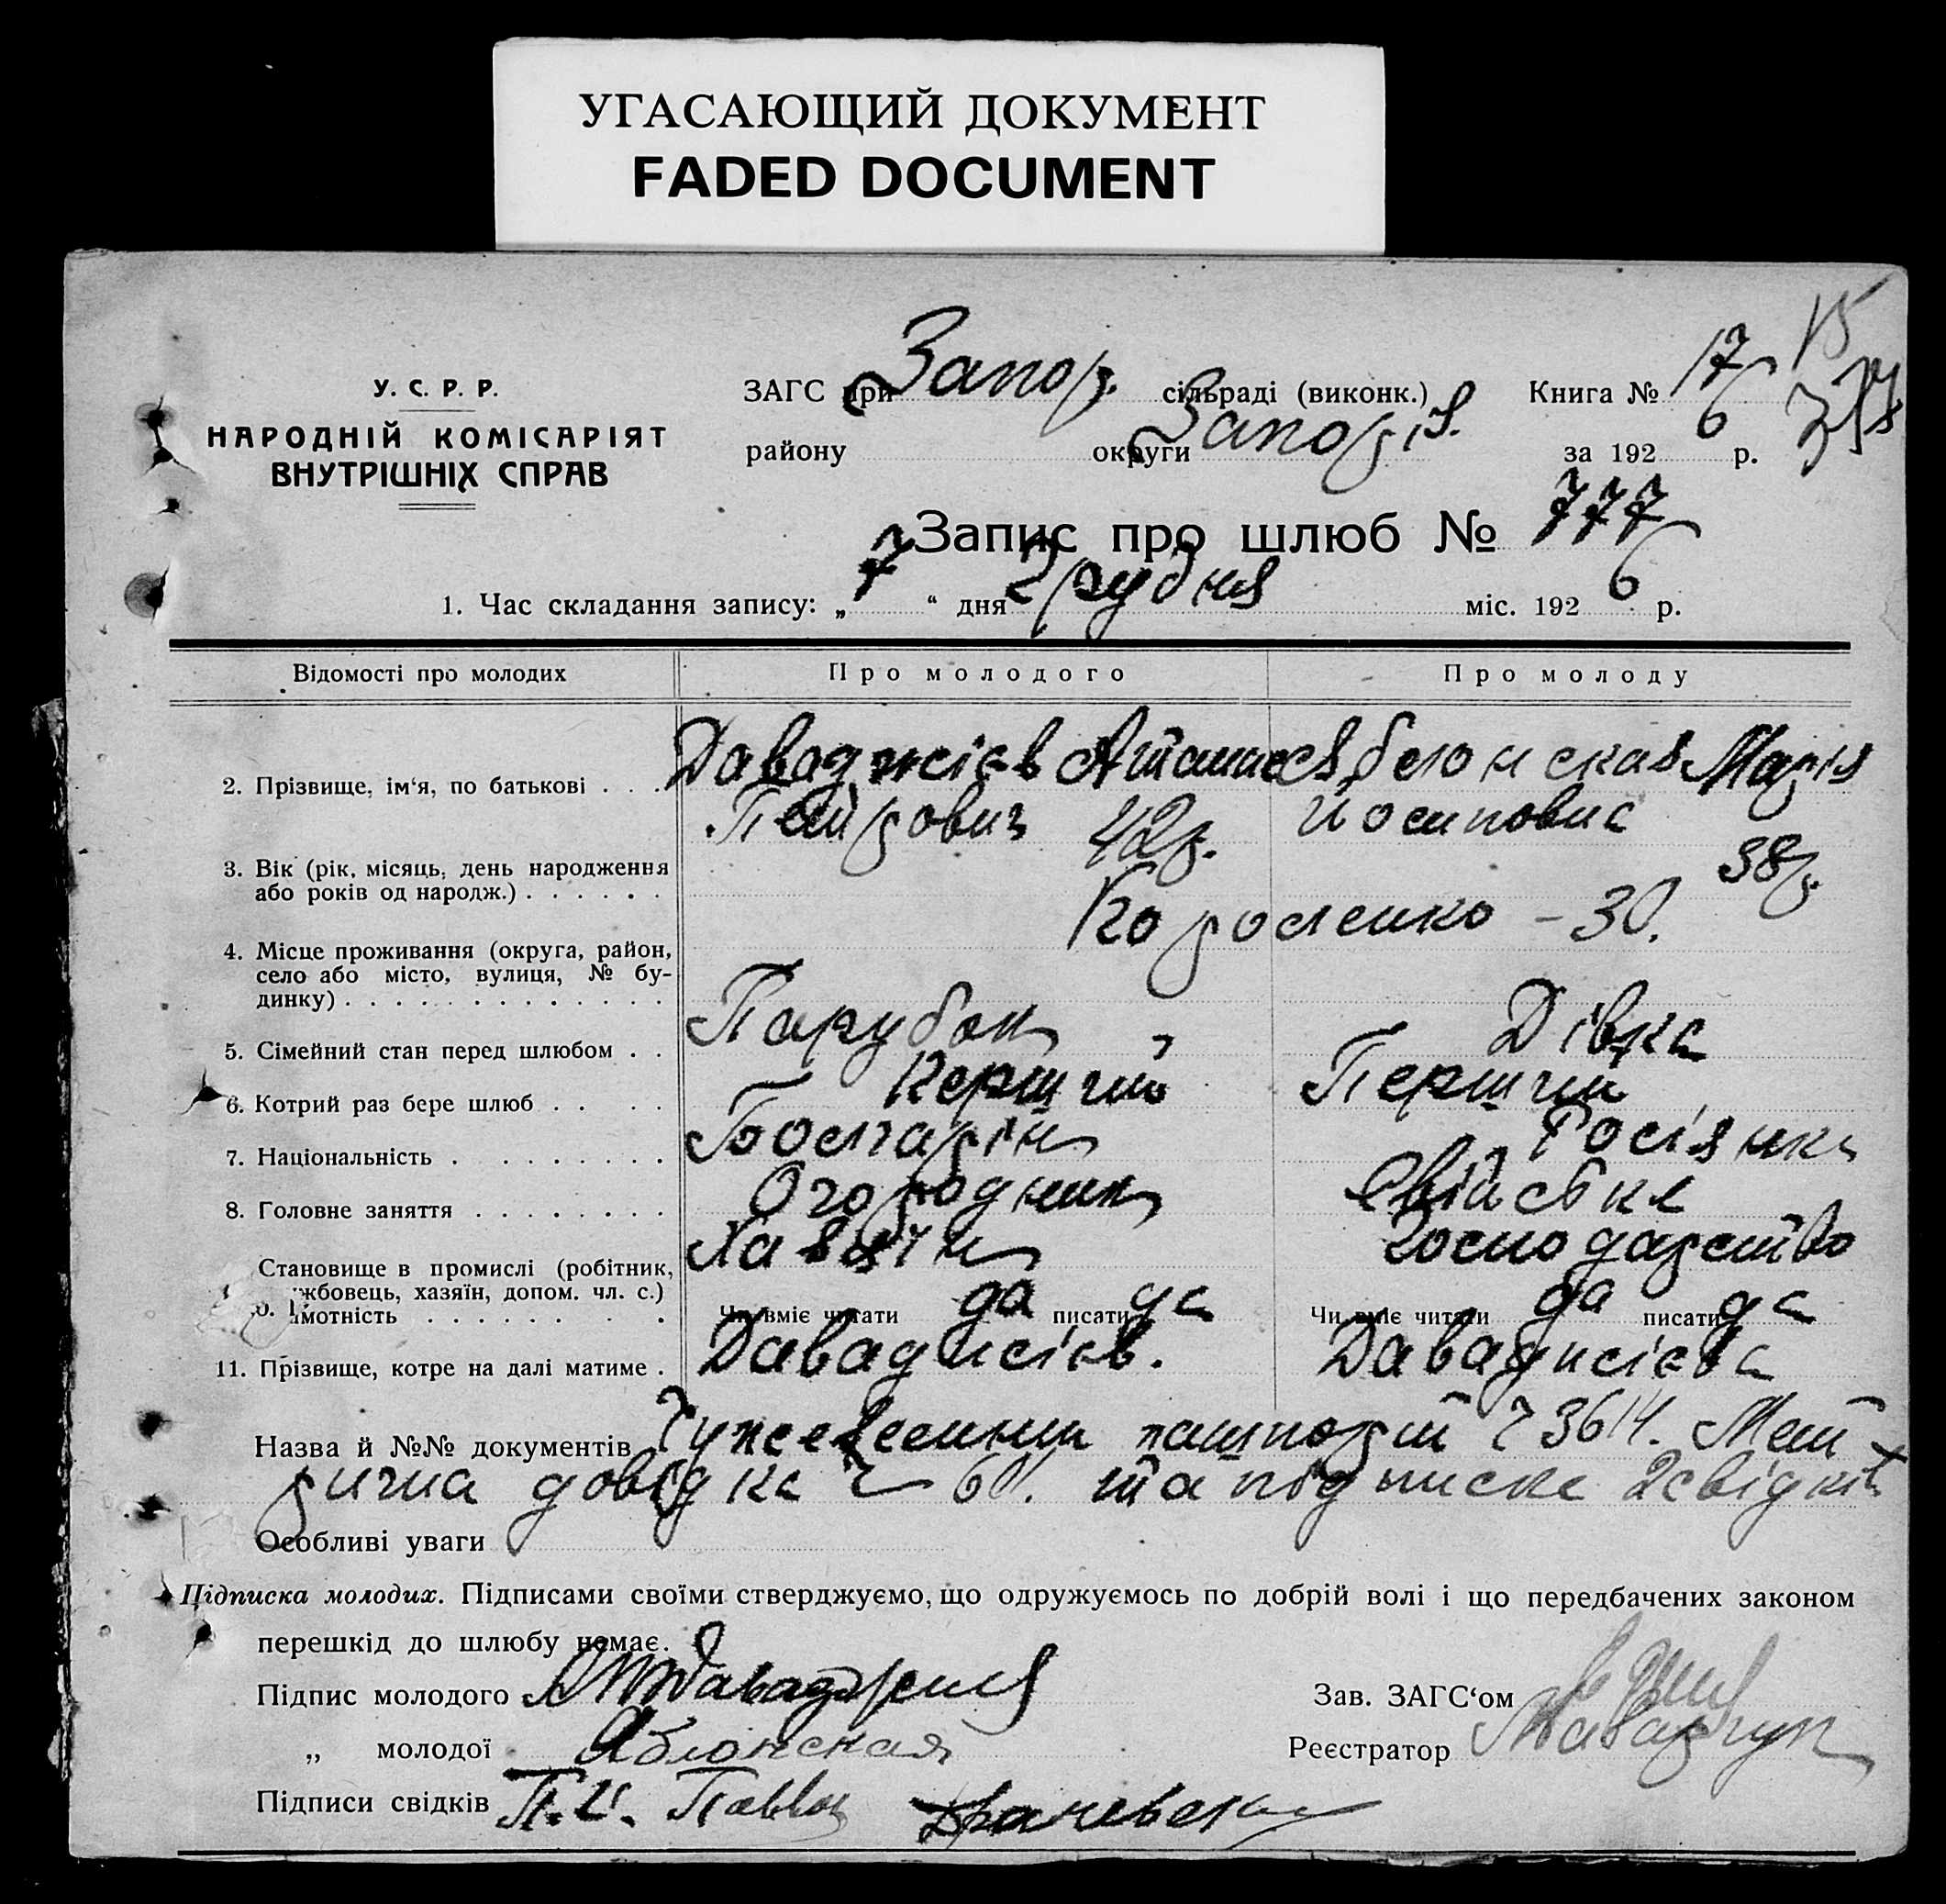 УГАСАЮЩИЙ ДОКУМЕНТ
FADED DOCUMENT
15
У. С. Р. Р.
НАРОДНІЙ КОМІСАРІЯТ
ВНУТРІШНІХ СПРАВ
ЗАГС при Запор. сільраді (виконк.) Книга № 17
району округи Запоріз. за 192 6 р.
Запис про шлюб № 777
1. Час складання запису: „ 7 “ дня Грудня міс. 192 6 р.
Відомості про молодих Про молодого Про молоду
2. Прізвище, ім‘я, по батькові . . . Даваджієв Атанас Яблонская Марія
Петрович 42р. Йосиповна 38р.
3. Вік (рік, місяць, день народження
або років од народж.) . . . . . .
Короленко – 30.
4. Місце проживання (округа, район,
село або місто, вулиця, № бу-
динку) . . . . . . . . . . . . .
5. Сімейний стан перед шлюбом . . Парубок Дівка
6. Котрий раз бере шлюб . . . . Перший Перший
7. Національність . . . . . . . . . Болгарін Росіянка
8. Головне заняття . . . . . . . . Огородник Свійське
Хазяїн господарство
Становище в промислі (робітник,
жбовець, хазяїн, допом. чл. с.)
мотність . . . . . . . . Чи вміє читати да писати да Чи вміє читати да писати да
11. Прізвище, котре на далі матиме . Даваджієв. Даваджієва
Назва й №№ документів Чужеземний пашпорт № 3614. Мет-
рична довідка № 601. та підписка 2 свідків
Особливі уваги
Підписка молодих. Підписами своїми стверджуємо, що одружуємось по добрій волі і що передбачених законом
перешкід до шлюбу немає.
Підпис молодого
Зав. ЗАГС‘ом
„ молодої Яблонская
Реєстратор
Підписи свідків